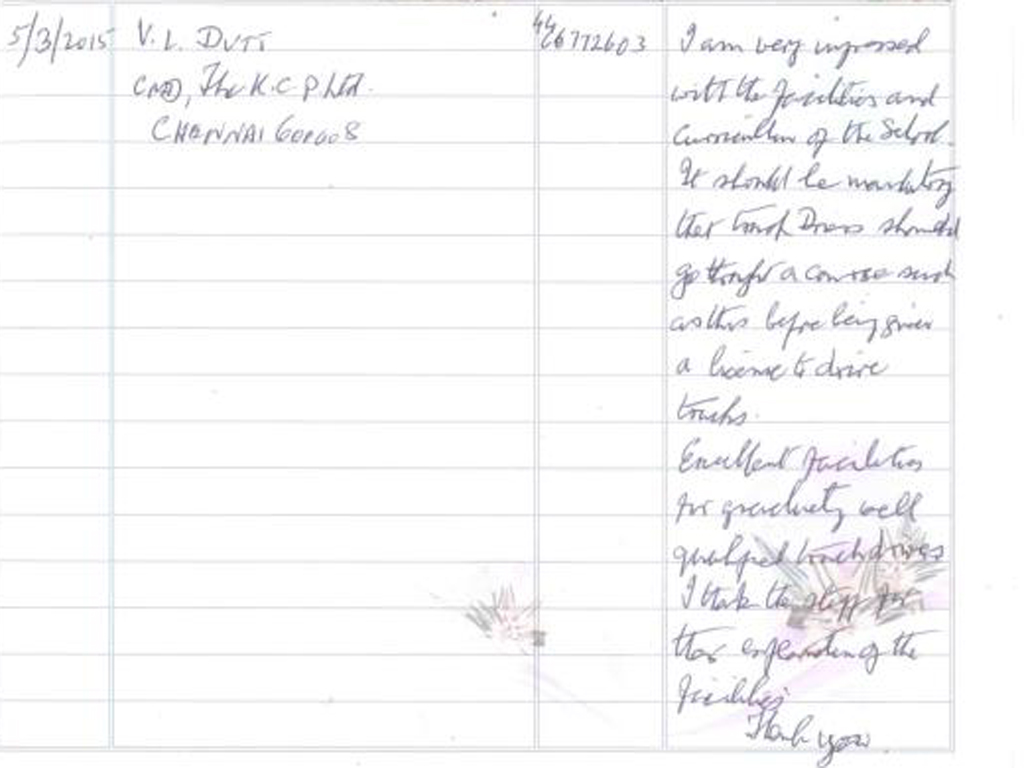 5/3/2015
V. L. DUTT
CMD, The K.C.P Ltd.
CHENNAI 600008
4426772603
I am very impressed
with the facilities and
curriculum of the School.
It should be mandatory
that truck Drivers should
go through a course such
as this before being given
a license to drive
trucks.
Excellent facilities
for graduating well
qualified truck drivers
I thank the staff for
their explanation of the
facilities
Thank you